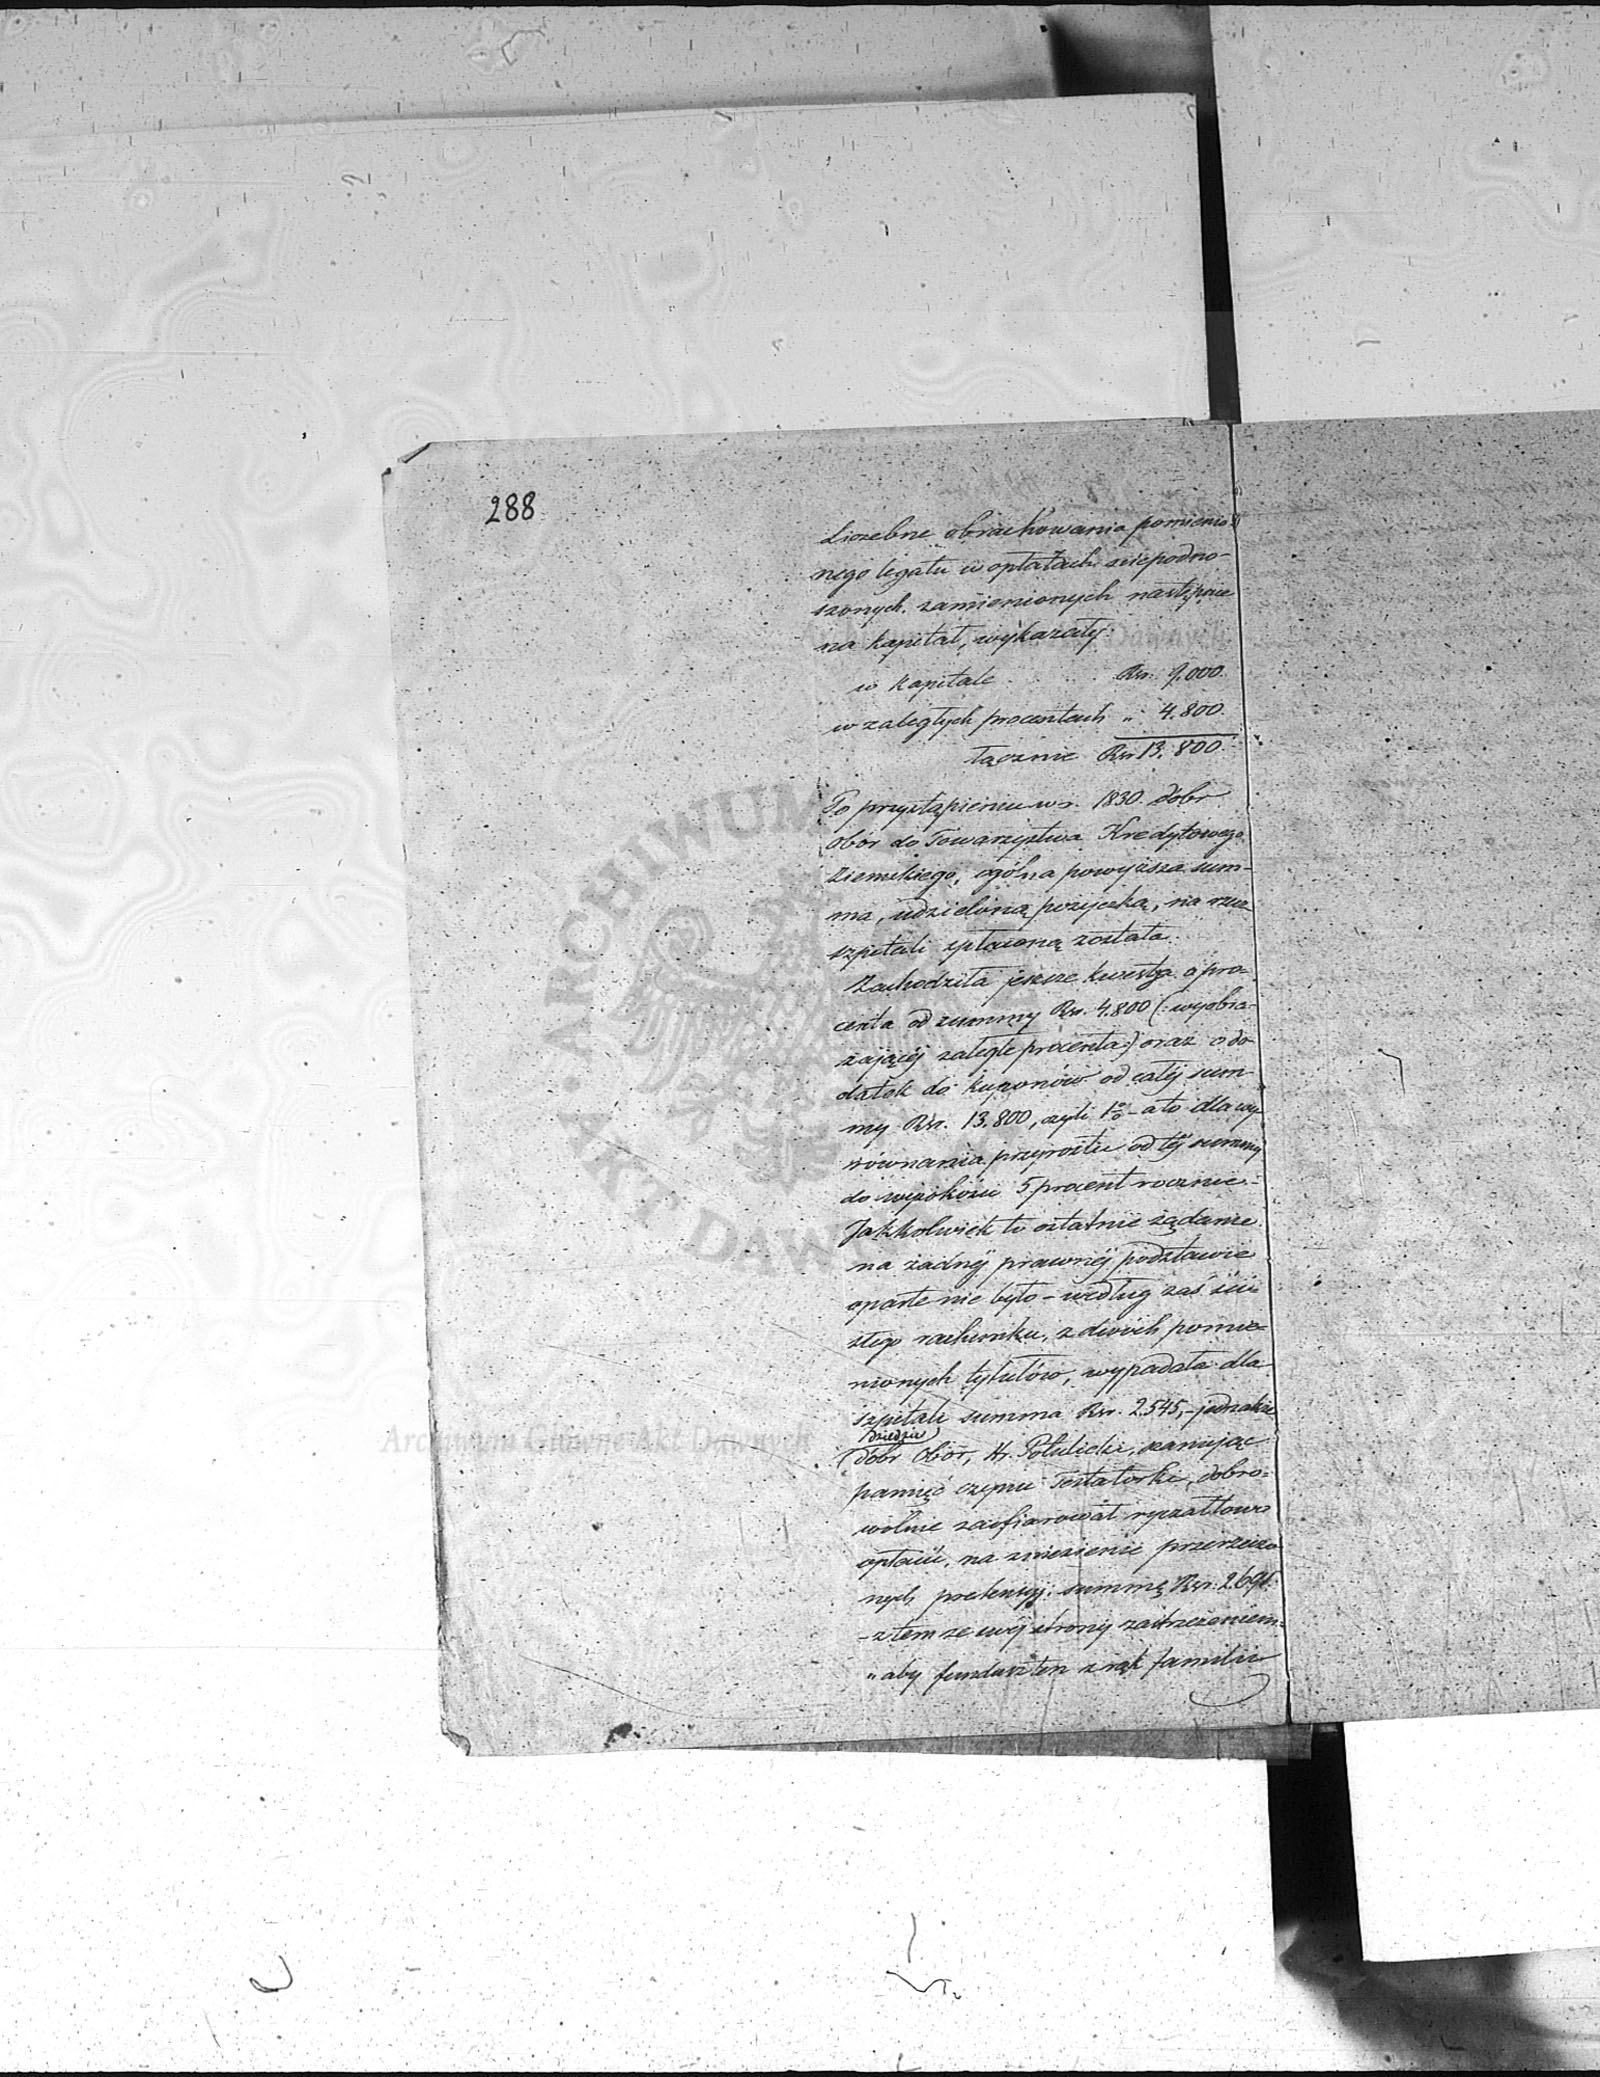 288
Liczebne obrachowania pomienio-
nego legatu w opłatach niepodno-
szonych zamienionych następnie
na kapitał, wykazały:
w kapitale Rsr. 9.000.
w zaległych procentach „ 4.800.
łącznie Rsr 13.800.
Po przystąpieniu w r. 1830 dóbr
Obór do Towarzystwa Kredytowego
Ziemskiego, ogólna powyższa sum-
ma, udzieloną pożyczką, na rzecz
szpitali spłaconą została.
Zachodziła jeszcze kwestya o pro-
centa od summy Rsr. 4.800 (: wyobra-
żającéj zaległe procenta:) oraz o do
datek do kuponów od całéj sum-
my Rsr. 13.800, czyli 1% - a to dla wy-
równania przyrostu od téj summy
do wysokości 5 procent rocznie.-
Jakkolwiek to ostatnie żądanie
na żadnéj prawnéj podstawie
oparte nie było - według zaś ści-
słego rachunku, z dwóch pomie-
nionych tytułów, wypadała dla
szpitali summa Rsr. 2.545,- jednakże
Dziedzic
dóbr Obór, Hr. Potulicki, szanując
pamięć czynu Testatorki, dobro-
wolnie zaofiarował ryczałtowo
opłacić, na zniesienie przerzeczo-
nych pretensyj, summę Rsr.
- z tem ze swéj strony zastrzeżeniem
„aby fundusz ten z rąk familii
ARCHIWUM
AKT DAW
Archiwum Główne Akt Dawnych